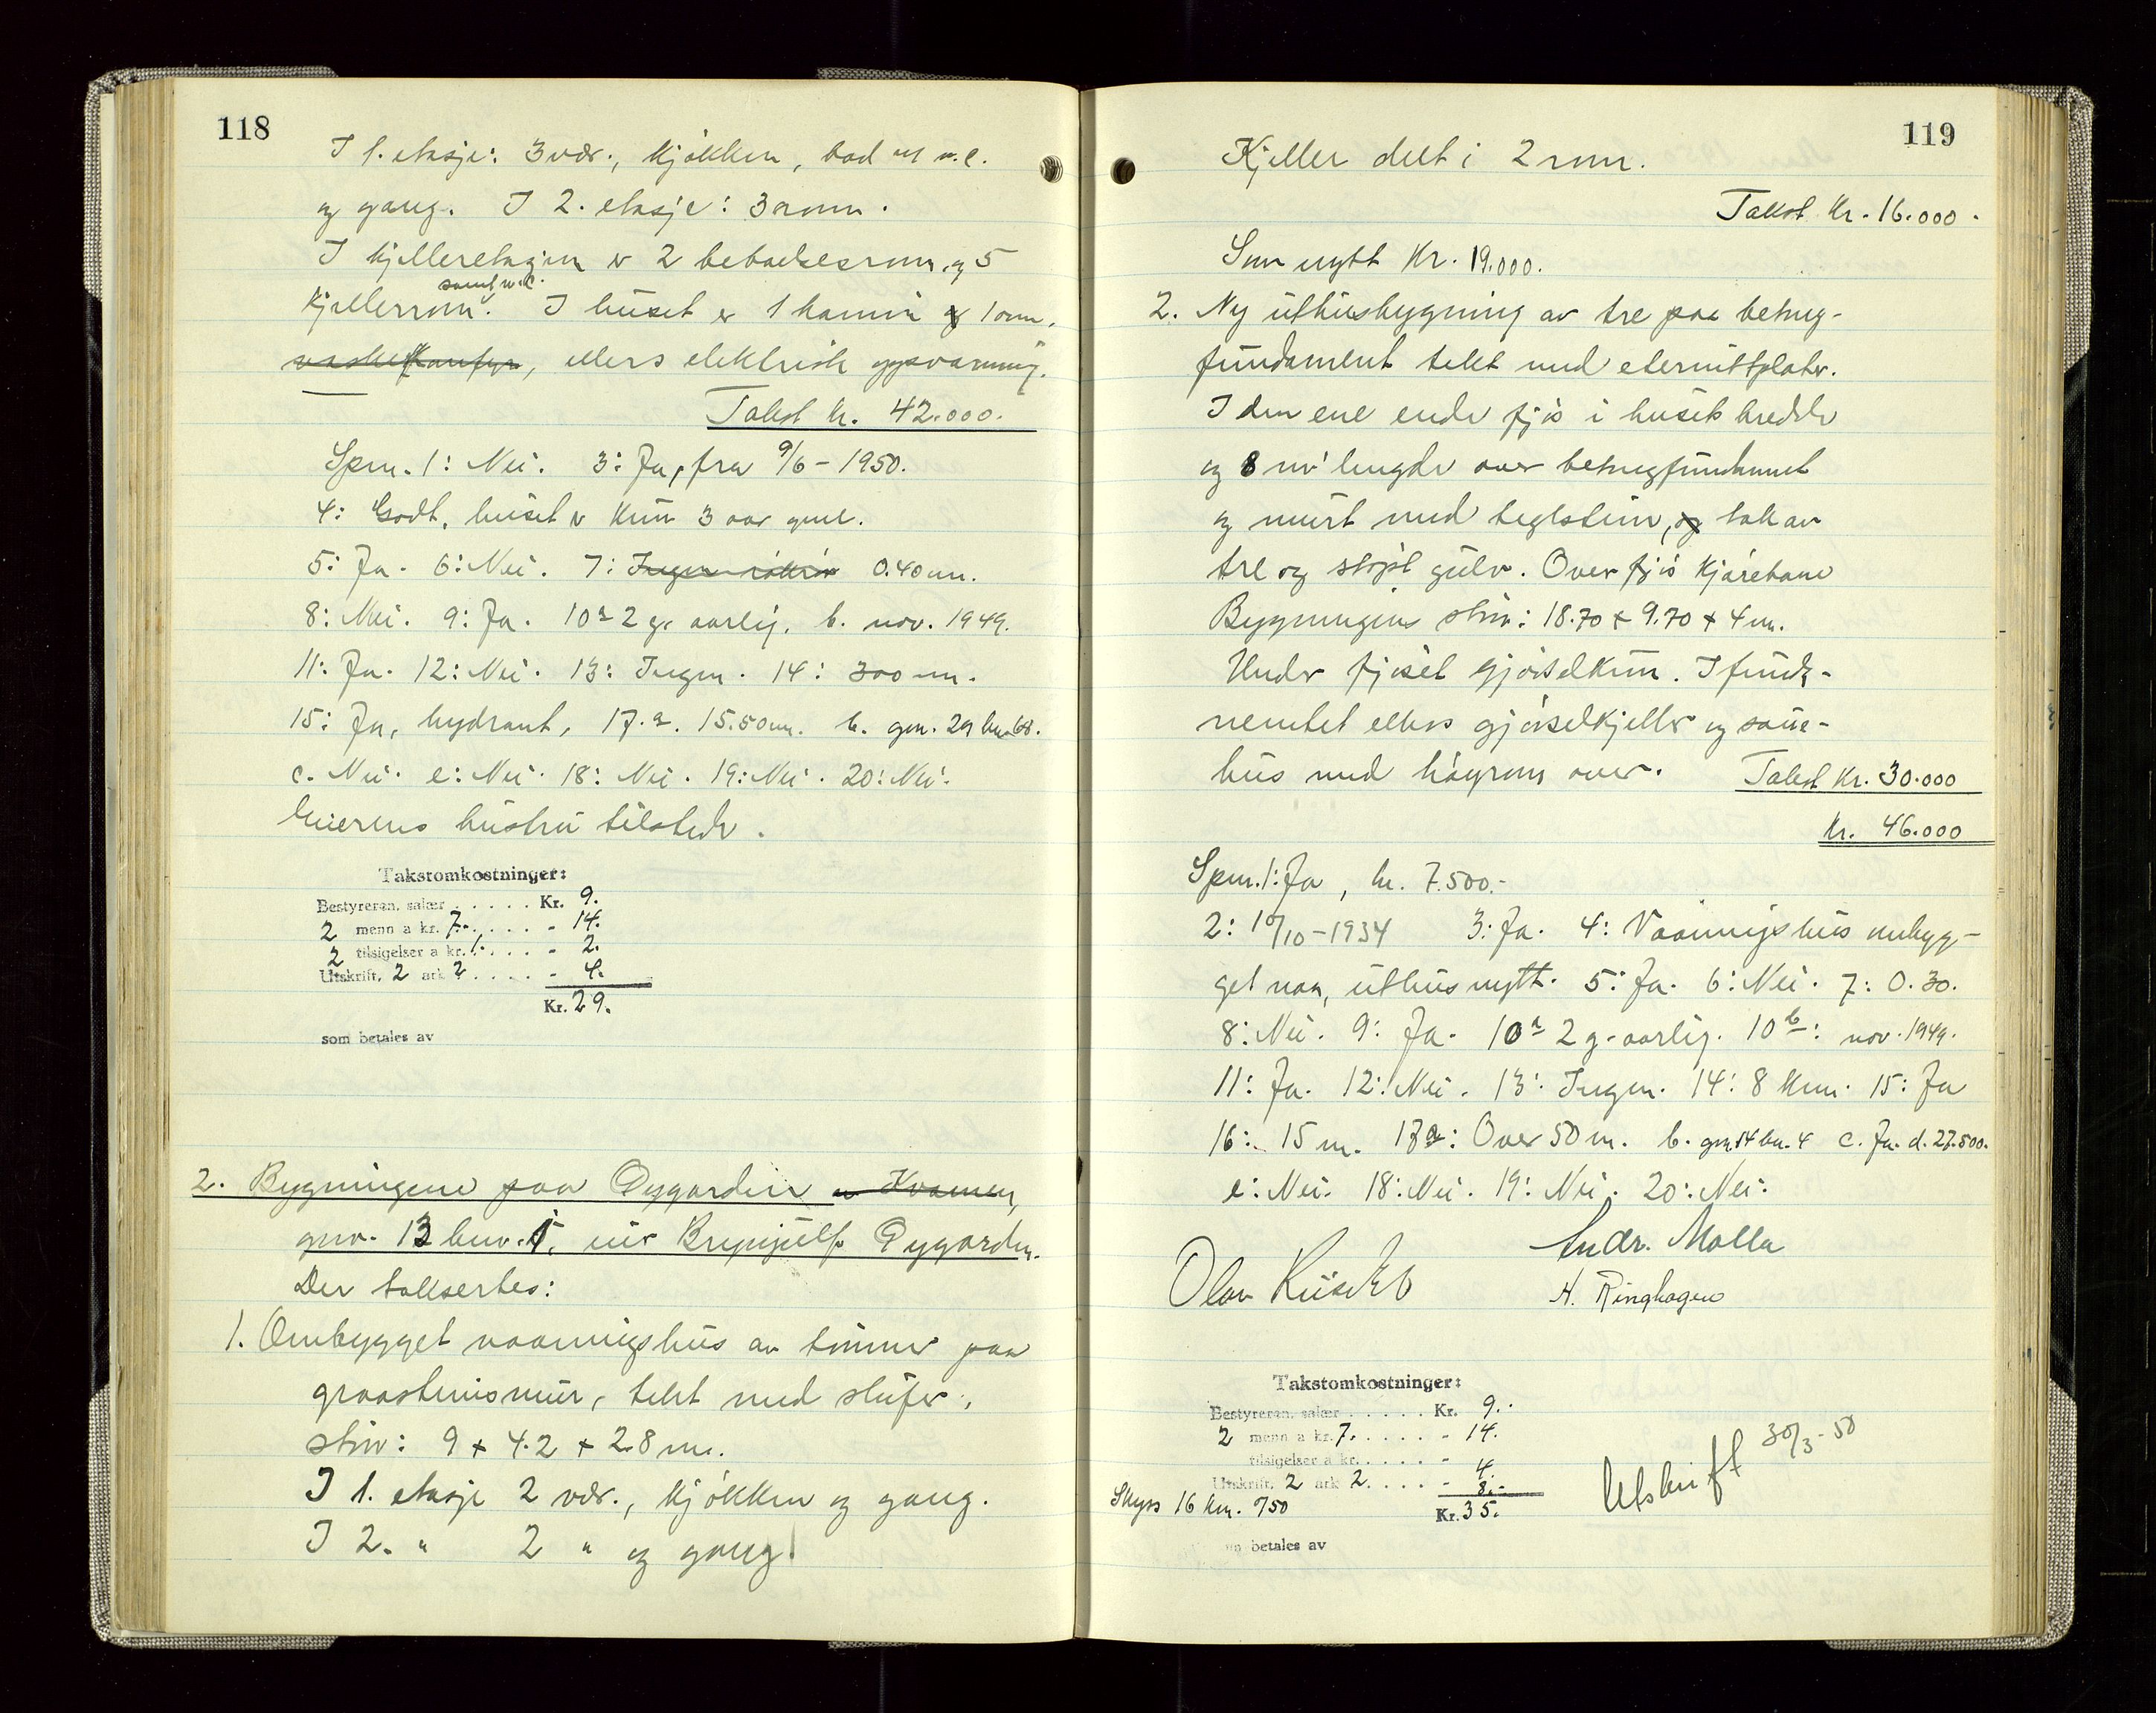 118
I 1. etasje: 3 vær., kjøkken, bad m w.c.
og gang. I 2. etasje: 3 rom.
I kjelleretasjen er 2 beboelsesrom og 5
samt w.c.
kjellerrom. I huset er 1 kamin og 1 ovn,
, ellers elektrisk opvarming.
Takst kr. 42.000.
Spm. 1: Nei. 3: Ja, fra 9/6-1950.
4: Godt, huset er kun 3 aar gml.
5: Ja. 6: Nei. 7: Ingen 0.40 m.
8: Nei. 9: Ja. 10a 2 g. aarlig. b. nov. 1949.
11: Ja. 12: Nei. 13: Ingen. 14: 300 m.
15: Ja, hydrant, 17.a. 15.50 m. b. gnr. 29 bnr 68.
c. Nei. e: Nei. 18: Nei. 19: Nei. 20: Nei.
Eierens hustru tilstede.
Takstomkostninger:
Bestyreren, salær . . . . . Kr. 9.
2 menn a kr. 7. . . . . - 14.
2 tilsigelser a kr. 1. . . . - 2.
Utskrift, 2 ark 2 . . . . - 4.
Kr. 29.
som betales av
2. Bygningene paa Øygarden av Kvamen,
gnr. 12 bnr. 1. eier Brynjulf Øygarden.
Der taksertes:
1. Ombygget vaaningshus av tømmer paa
graastensmur, tekt med skifer,
størr: 9 + 4.2 + 2.8 m.
I 1. etasje 2 vær., kjøkken og gang.
I 2. " 2 " og gang.
119
Kjeller delt i 2 rom.
Takst kr. 16.000.
Som nytt kr. 19.000.
2. Ny uthusbygning av tre paa betong-
fundament tekt med eternittplater.
I den ene ende fjøs i husets bredde
og 8 m's lengde over betongfundament
og murt med teglstein, og tak av
tre og støpt gulv. Over fjøs kjørebane
Bygningens størr: 18.70 + 9.70 + 4 m.
Under fjøset gjødselrum. I funda-
mentet ellers gjødselkjeller og saue-
hus med høyrom over. Takst kr. 30.000
Kr. 46.000
Spm. 1: Ja, kr. 7.500.-
2: 10/10-1934 3: Ja. 4: Vaaningshus ombyg-
get noe, uthus nytt. 5: Ja. 6: Nei. 7: 0.30.
8: Nei. 9: Ja. 10a 2 g. aarlig. 10b: nov. 1949.
11: Ja. 12: Nei. 13: Ingen. 14: 8 km. 15: Ja
16: 15 m. 17a: Over 50 m. b. gnr 14 bn. 4 c. Ja. d. 27.500.
e: Nei. 18: Nei. 19: Nei. 20: Nei.
Andr. Molla
Olav H. Ringhagen
Takstomkostninger:
Bestyreren, salær . . . . . Kr. 9.
2 menn a kr. 7. . . . . - 14.
tilsigelser a kr. . . . - 4.
Utskrift, 2 ark 2. . . . - 8.-
Skyss 16 km. 0/50 Kr. 35.
betales av
Utskrift 30/3-50